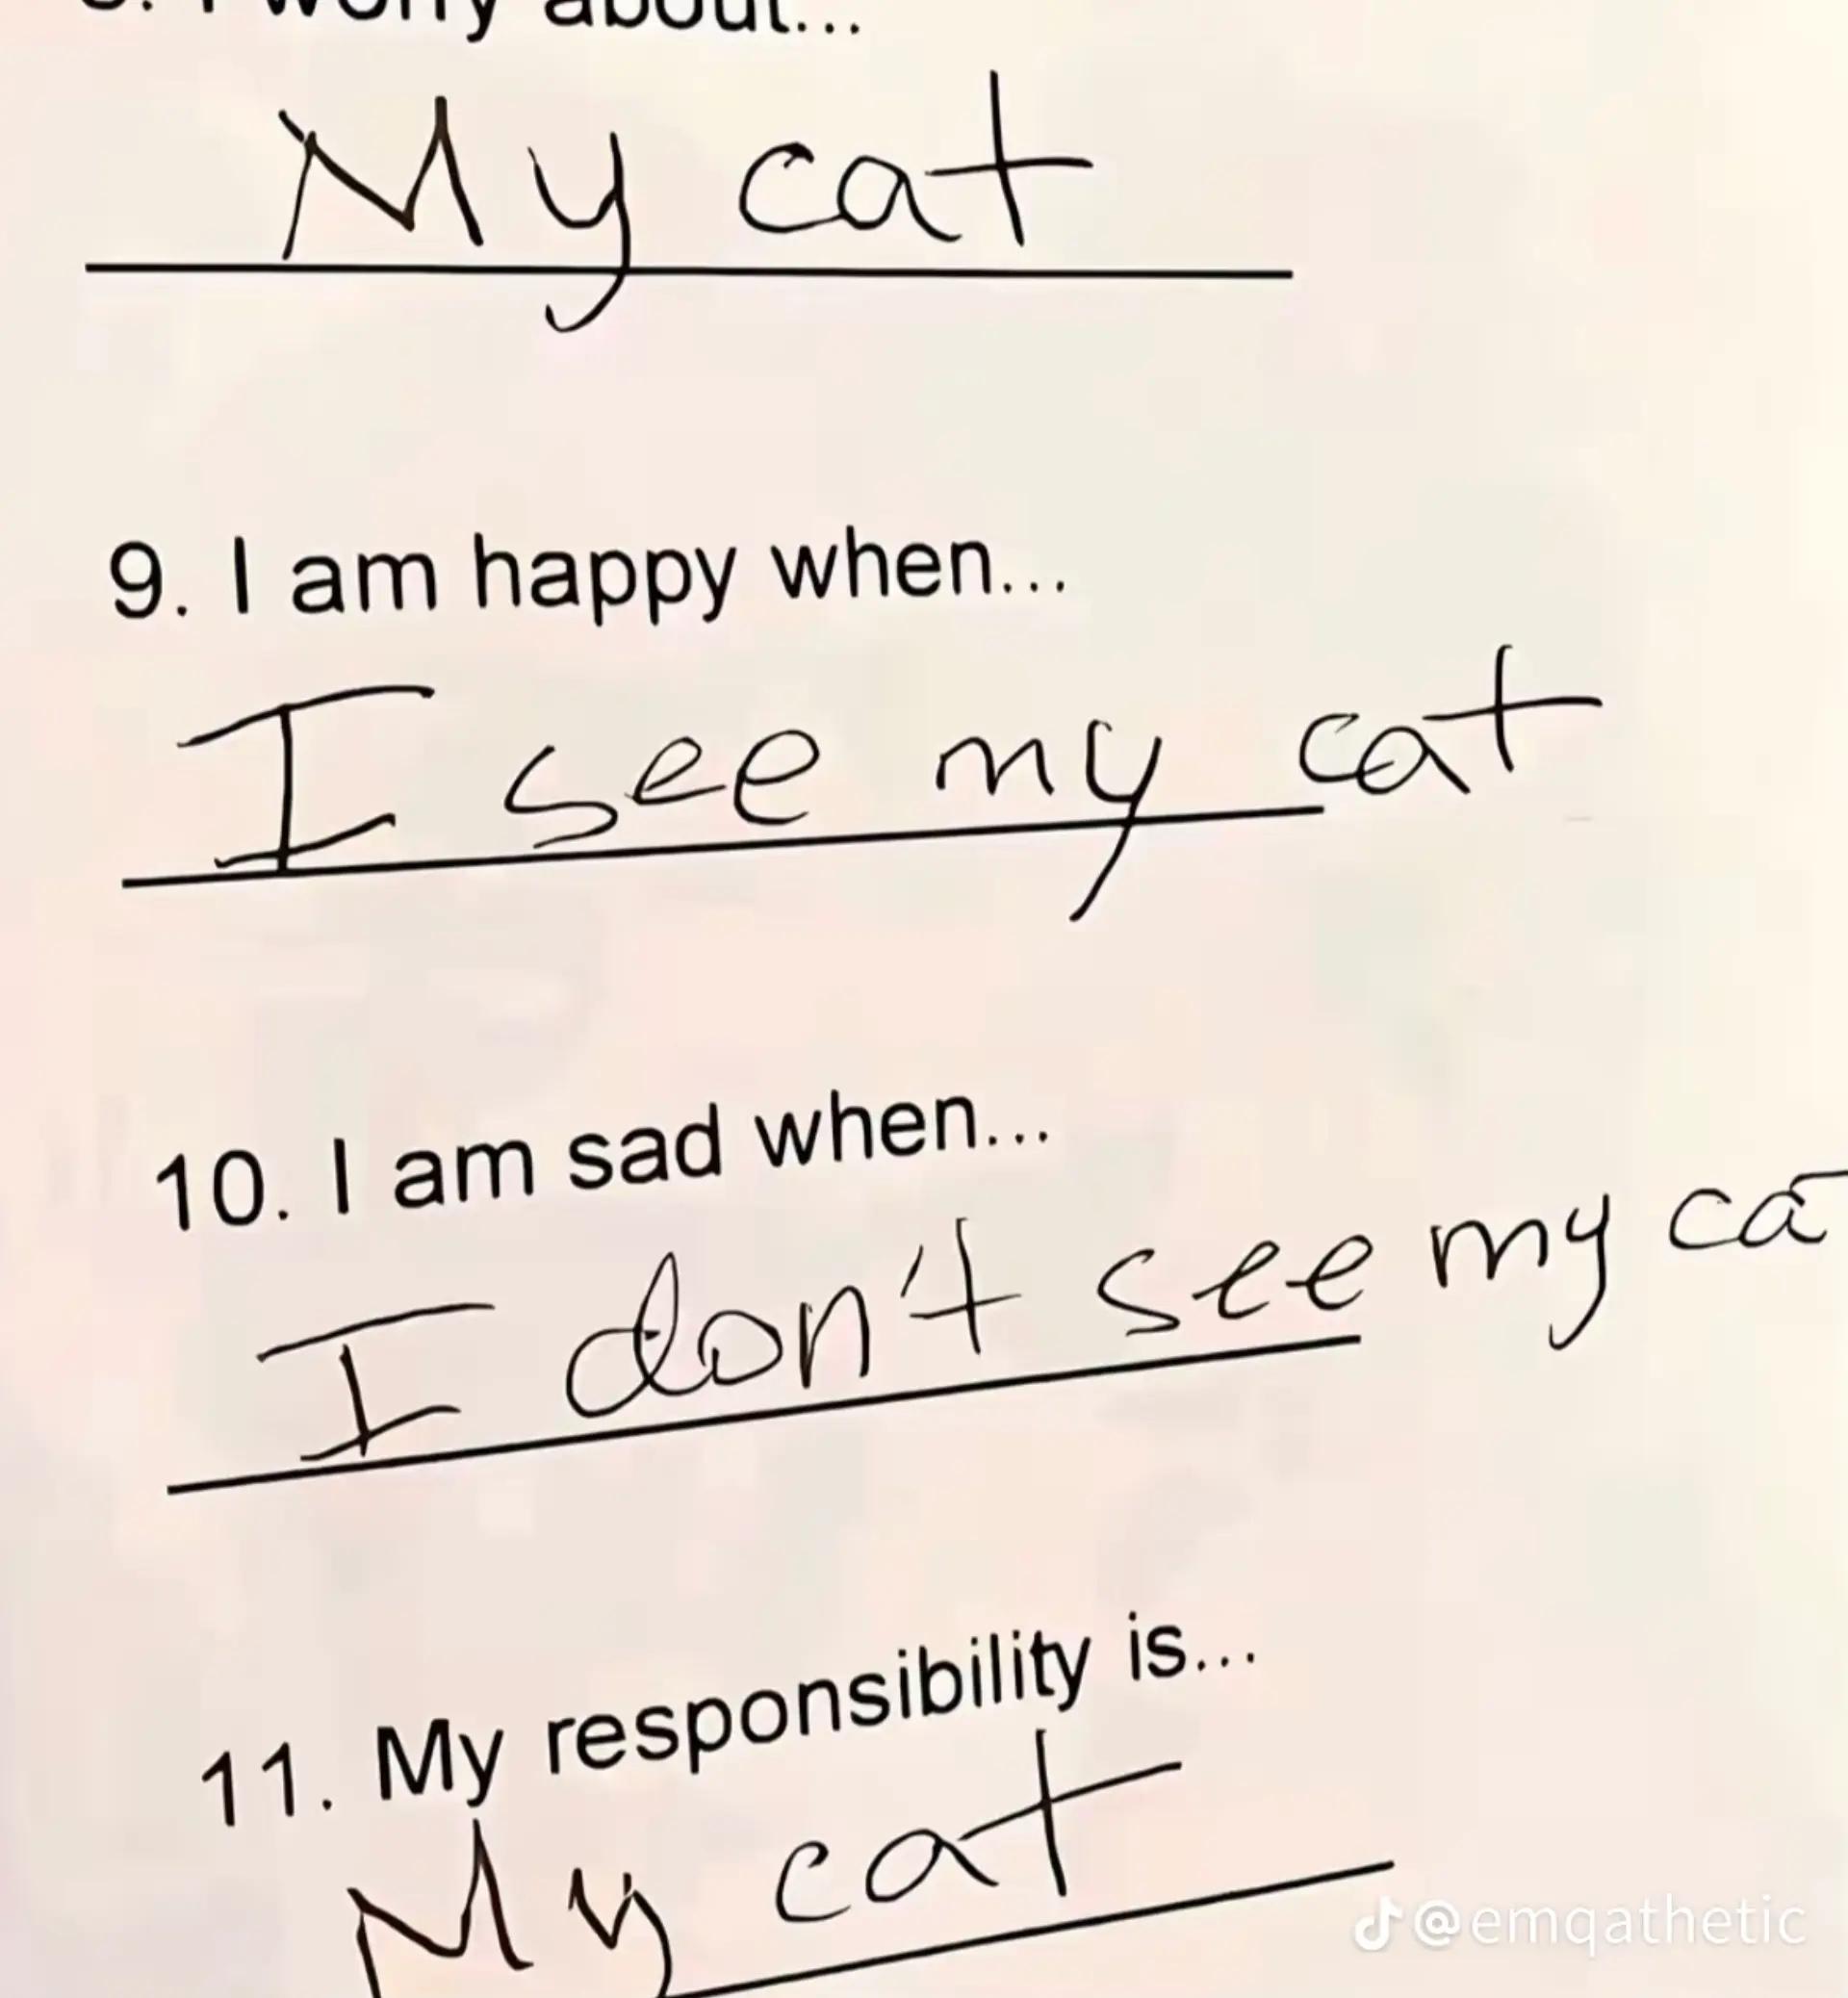 I worry about...
My cat
9. I am happy when...
I see my cat
10. I am sad when...
I don't see my ca
11. My responsibility is...
My cat
@emqathetic